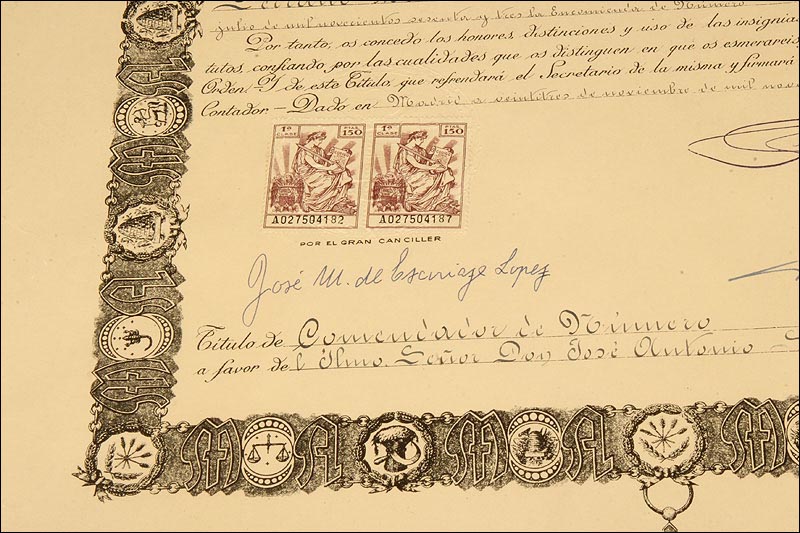 julio de mil novecientos sesenta y tres la Encomienda de Número
Por tanto, os concedo los honores, distinciones y uso de las insignias
tutos, confiando por las cualidades que os distinguen en que os esmerareis
Orden. Y de este Título, que refrendará el Secretario de la misma y firmará
Contador. — Dado en Madrid a veintitres de noviembre de mil nove
1ª CLASE PTAS 150 1ª CLASE PTAS 150
A027504182 A027504187
POR EL GRAN CANCILLER
José M. de Escoriaza Lopez
Título de Comendador de Número
a favor del Ilmo. Señor Don José Antonio